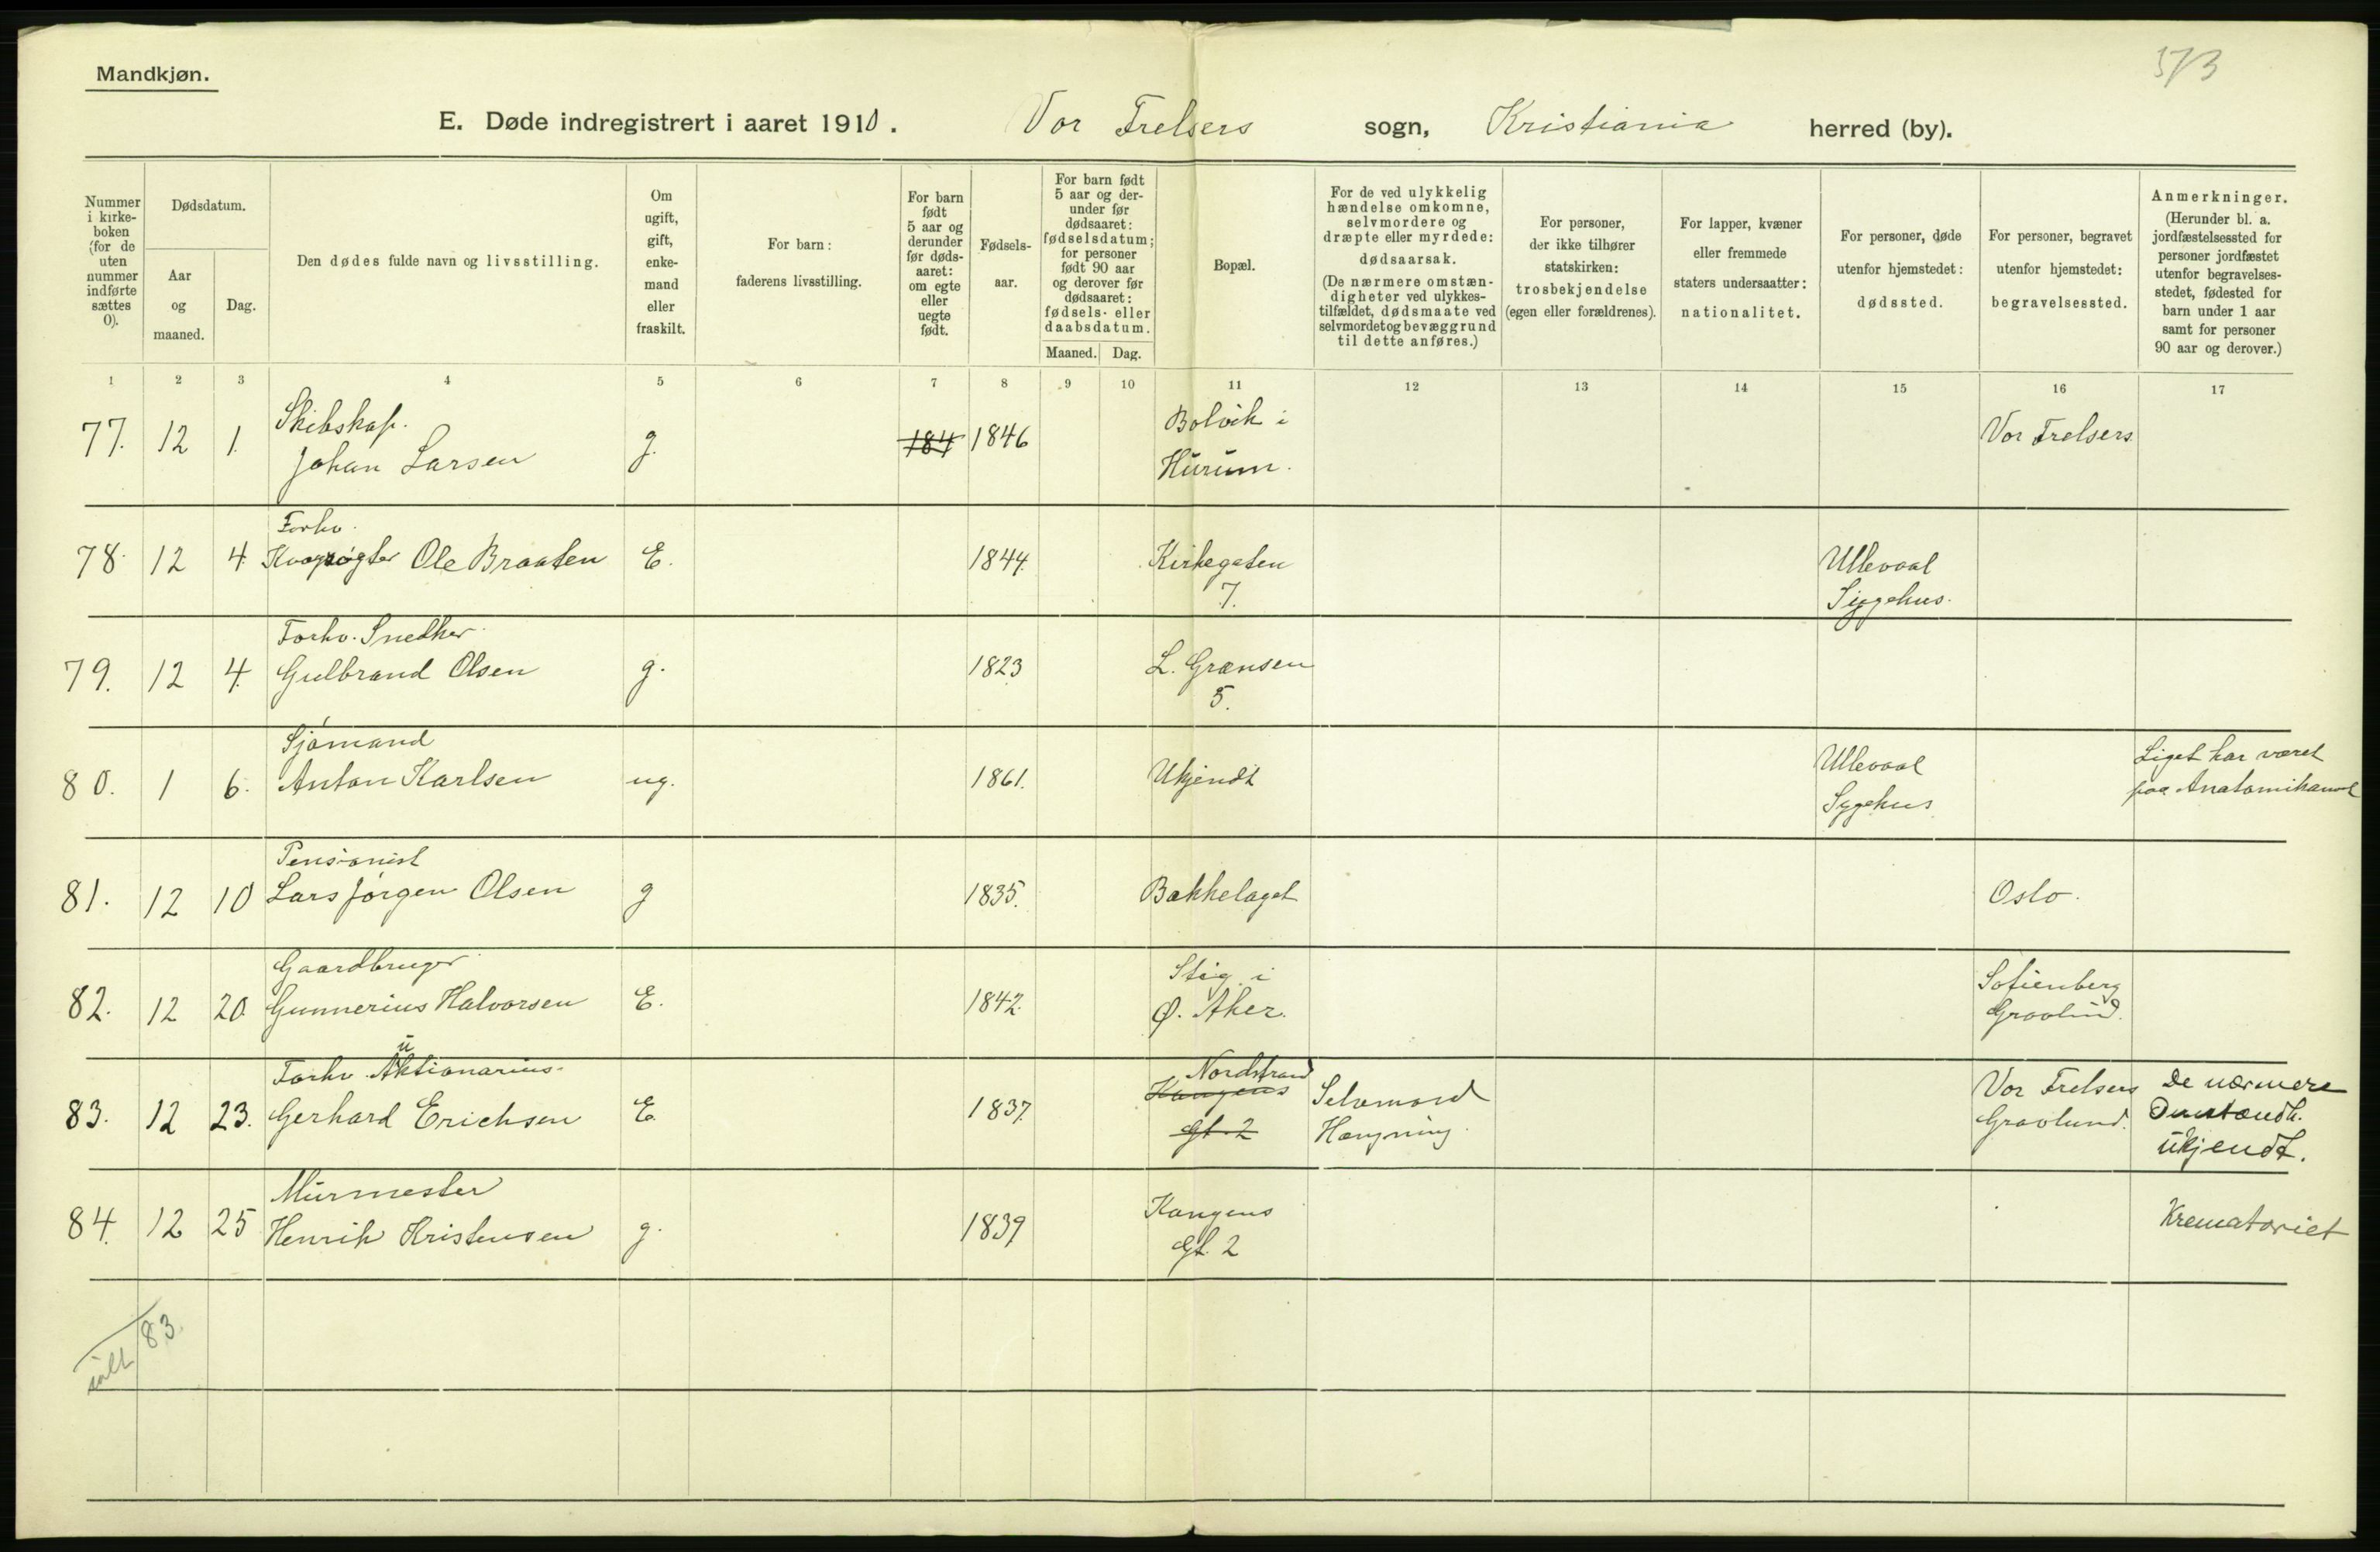 Mandkjøn.
573
E. Døde indregistrert i aaret 1910. Vor Frelsers sogn, Kristiania herred (by).
Nummer i kirke-boken (for de uten nummer indførte sættes 0).
Dødsdatum.
Aar og maaned.
Dag.
Den dødes fulde navn og livsstilling.
Om ugift, gift, enke-mand eller fraskilt.
For barn: faderens livsstilling.
For barn født 5 aar og derunder før døds-aaret: om egte eller uegte født.
Fødsels-aar.
For barn født 5 aar og der-under før dødsaaret: fødselsdatum; for personer født 90 aar og derover før dødsaaret: fødsels- eller daabsdatum.
Maaned. Dag.
Bopæl.
For de ved ulykkelig hændelse omkomne, selvmordere og dræpte eller myrdede: dødsaarsak.
(De nærmere omstæn-digheter ved ulykkes-tilfældet, dødsmaate ved selvmord et og bevæggrund til dette anføres.)
For personer, der ikke tilhører statskirken: trosbekjendelse (egen eller forældrenes).
For lapper, kvæner eller fremmede staters undersaatter: nationalitet.
For personer, døde utenfor hjemstedet: dødssted.
For personer, begravet utenfor hjemstedet: begravelsessted.
Anmerkninger.
(Herunder bl. a. jordfæstelsessted for personer jordfæstet utenfor begravelses-stedet, fødested for barn under 1 aar samt for personer 90 aar og derover.)
1 2 3 4 5 6 7 8 9 10 11 12 13 14 15 16 17
Skibskap. Bolvik i
77. 12 1. Johan Larsen g. 184 1846 Hurum. Vor Frelsers
Forhv.
78. 12 4. Ole Braaten E. 1844. Kirkegaten Ullevaal
7. Sygehus.
Forhv. Snedker
79. 12 4. Gulbrand Olsen g. 1823 L. Grænsen
5.
Sjømand Ullevaal Liget har været
80. 1 6. Anton Karlsen ug. 1861. Ukjendt Sygehus paa
Pensionist
81. 12 10 Lars Jørgen Olsen g 1835. Bækkelaget Oslo.
Gaardbruger Stig i Sofienberg
82. 12 20. Gunnerius Halvorsen E. 1842. Ø. Aker. Gravlund.
Forhv. Auktionarius. Nordstrand Vor Frelsers De nærmere
83. 12 23. Gerhard Erichsen E. 1837. Kongens Selvmord Gravlund. Omstændh.
gt. 2 Hængning. ukjendt.
Murmester Kongens
84. 12 25 Henrik Kristensen g. 1839 Gt. 2 Krematoriet
ialt 83.